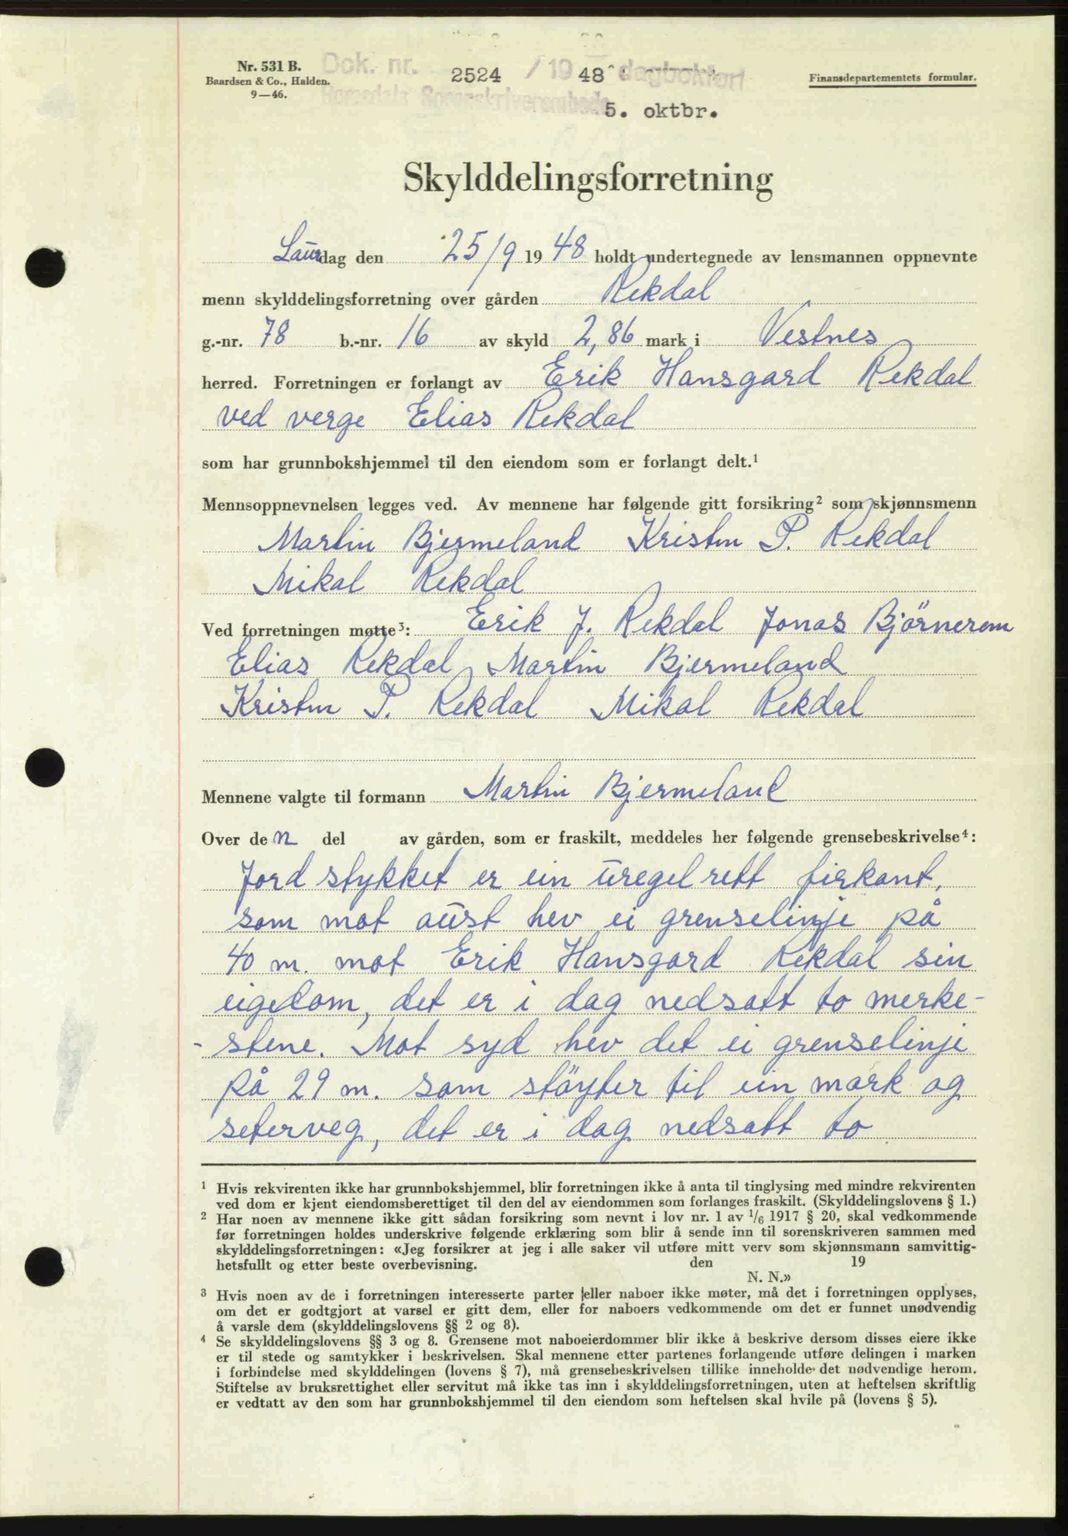 Nr. 531 B.
Baardsen & Co., Halden.
9—46.
Dok. nr. 2524 / 19 48 dagbokført
Romsdals Sorenskriverembede
5. oktbr.
Finansdepartementets formular.
Skylddelingsforretning
Laurdag den 25/9 19 48 holdt undertegnede av lensmannen oppnevnte
menn skylddelingsforretning over gården Rekdal
g.-nr. 78 b.-nr. 16 av skyld 2,86 mark i Vestnes
herred. Forretningen er forlangt av Erik Hansgard Rekdal
ved verge Elias Rekdal
som har grunnbokshjemmel til den eiendom som er forlangt delt.¹
Mennsoppnevnelsen legges ved. Av mennene har følgende gitt forsikring² som skjønnsmenn
Martin Bjermeland Kristen P. Rekdal
Mikal Rekdal
Ved forretningen møtte³: Erik J. Rekdal Jonas Björnerem
Elias Rekdal Martin Bjermeland
Kristen P. Rekdal Mikal Rekdal
Mennene valgte til formann Martin Bjermeland
Over den del av gården, som er fraskilt, meddeles her følgende grensebeskrivelse⁴:
Jordstykket er ein uregelrett firkant,
som mot aust hev ei grenselinje på
40 m. mot Erik Hansgard Rekdal sin
eigedom, det er i dag nedsatt to merke-
- stene. Mot syd hev det ei grenselinje
på 29 m. som støyter til ein mark og
seterveg, det er i dag nedsatt to
¹ Hvis rekvirenten ikke har grunnbokshjemmel, blir forretningen ikke å anta til tinglysing med mindre rekvirenten
ved dom er kjent eiendomsberettiget til den del av eiendommen som forlanges fraskilt. (Skylddelingslovens § 1.)
² Har noen av mennene ikke gitt sådan forsikring som nevnt i lov nr. 1 av 1/6 1917 § 20, skal vedkommende
før forretningen holdes underskrive følgende erklæring som blir å sende inn til sorenskriveren sammen med
skylddelingsforretningen: «Jeg forsikrer at jeg i alle saker vil utføre mitt verv som skjønnsmann samvittig-
hetsfullt og etter beste overbevisning. den 19
N. N.»
³ Hvis noen av de i forretningen interesserte parter eller naboer ikke møter, må det i forretningen opplyses,
om det er godtgjort at varsel er gitt dem, eller for naboers vedkommende om det er funnet unødvendig
å varsle dem (skylddelingslovens §§ 2 og 8).
⁴ Se skylddelingslovens §§ 3 og 8. Grensene mot naboeierdommer blir ikke å beskrive dersom disses eiere ikke
er til stede og samtykker i beskrivelsen. Skal mennene etter partenes forlangende utføre delingen i marken
i forbindelse med skylddelingen (lovens § 7), må grensebeskrivelsen tillike inneholde det nødvendige herom.
Stiftelse av bruksrettighet eller servitut må ikke tas inn i skylddelingsforretningen, uten at heftelsen skriftlig
er vedtatt av den som har grunnbokshjemmel til den eiendom som heftelsen skal hvile på (lovens § 5).